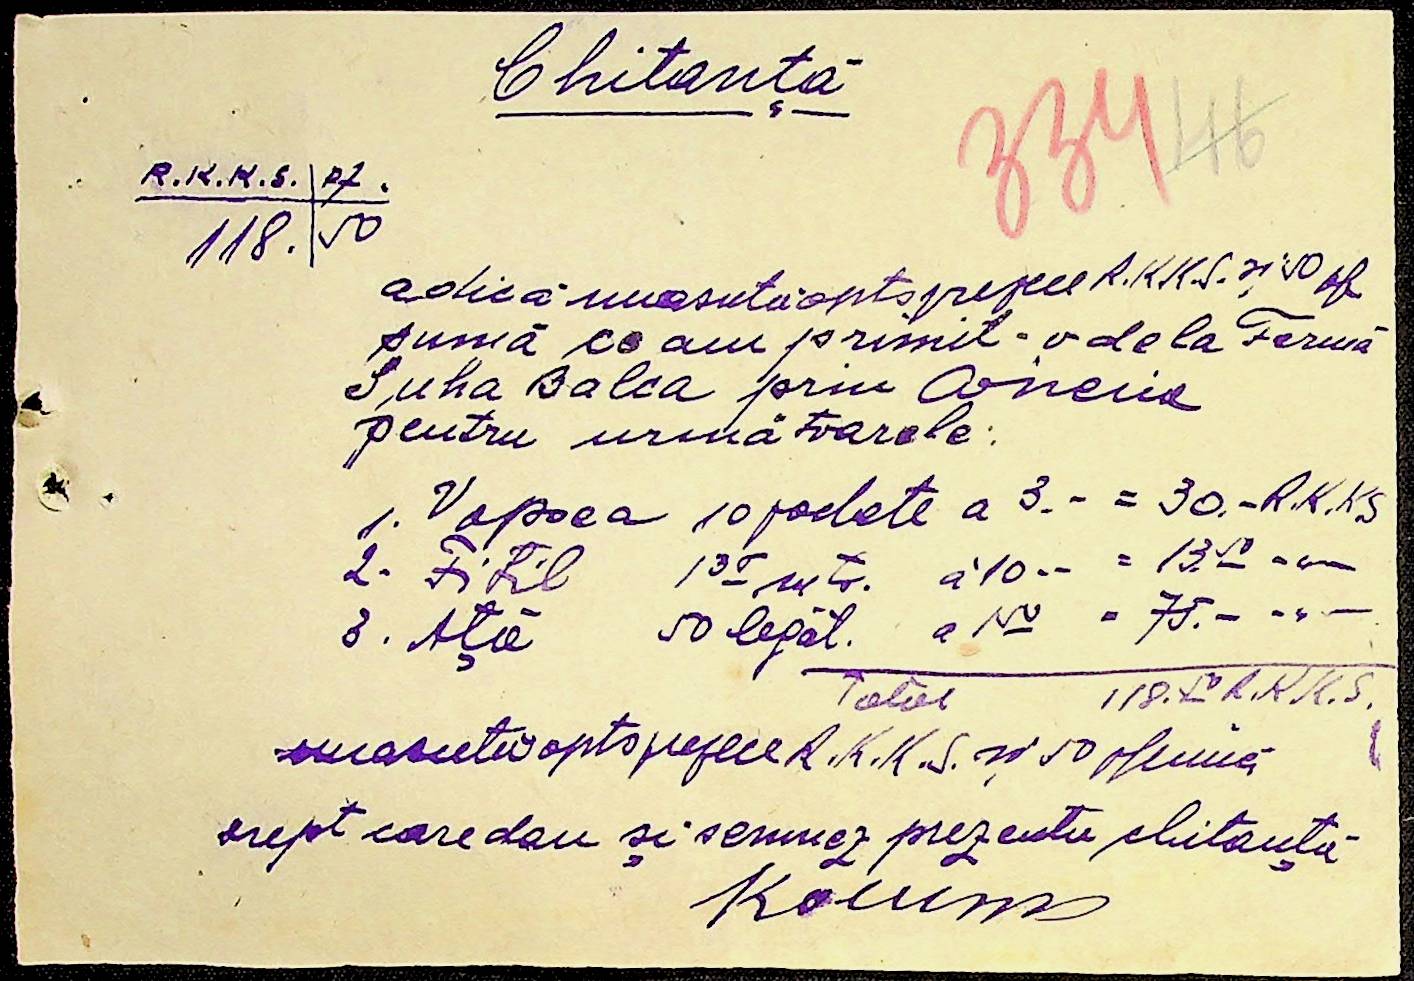 Chitanță
334 46
R.K.K.S. | pf.
118. | 50
adică unasutăoptsprejece R.K.K.S. și 50 pf
sumă ce am primit-o de la Fermă
Suha Balca prin
pentru următoarele:
1. Vopsea 10 pachete a 3.- = 30.- R.K.K.S
2. Fitil 1 35 mtr. a 10.- = 13.50 -"-
3. Ață 50 legăt. a 1 50 = 75.- -"-
Total 118.50 R.K.K.S.
unasutăoptsprejece R.K.K.S. și 50 pf
drept care dau și semnez prezenta chitanță